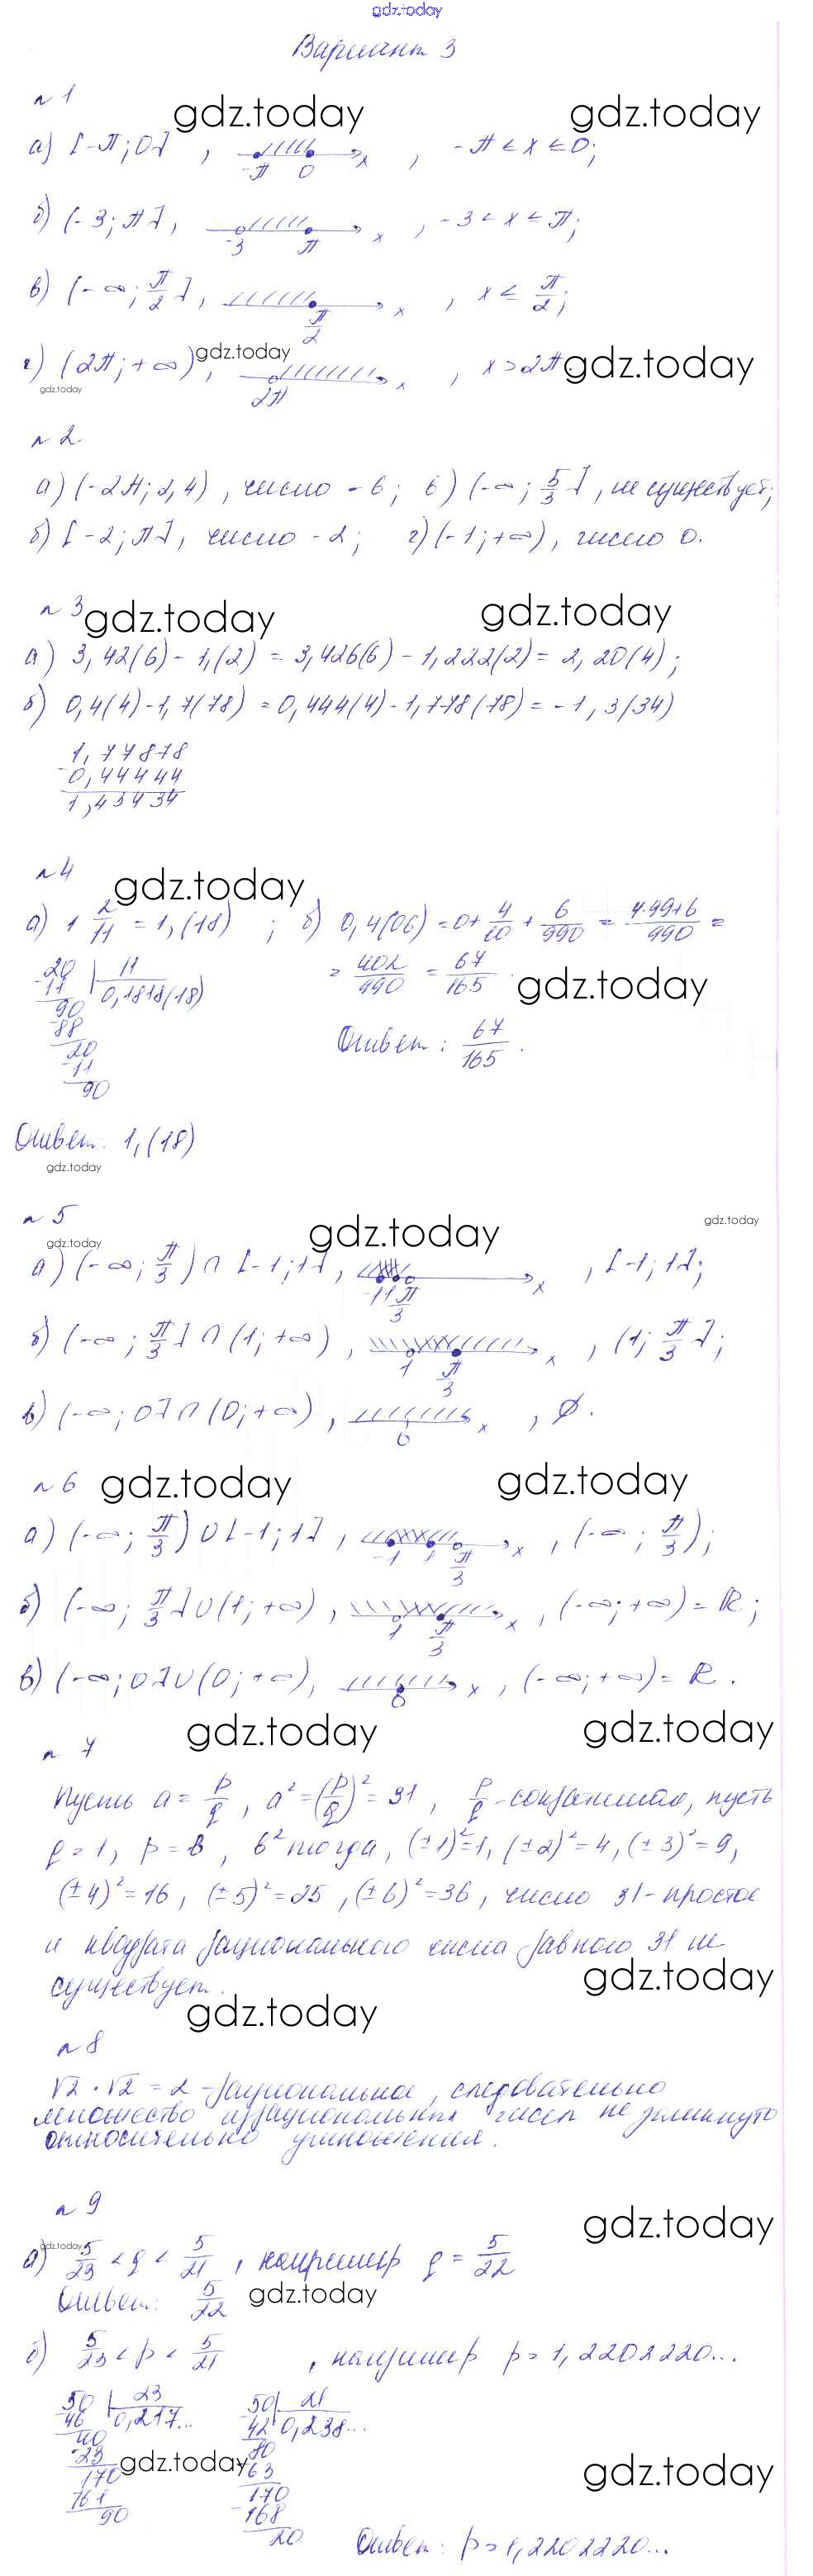 gdz.today
Вариант 3
n 1
gdz.today gdz.today
а) [-π; 0] , -π 0 x , -π ≤ x ≤ 0;
б) (-3; π], -3 π x , -3 < x ≤ π;
в) (-∞; π/2], π/2 x , x ≤ π/2;
г) (2π; +∞), gdz.today 2π x , x > 2π gdz.today
gdz.today
n 2.
а) (-2π; 2,4), число -6; в) (-∞; 5/3], не существует;
б) [-2; π], число -2; г) (-1; +∞), число 0.
n 3 gdz.today gdz.today
а) 3,42(6) - 1,(2) = 3,426(6) - 1,222(2) = 2,20(4);
б) 0,4(4) - 1,7(78) = 0,444(4) - 1,778(78) = -1,3(34)
1,77878
- 0,44444
1,43434
n 4 gdz.today
а) 1 2/11 = 1,(18) ; б) 0,4(06) = 0 + 4/10 + 6/990 = 4·99+6/990 =
= 402/990 = 67/165 gdz.today
20 | 11
-11 0,1818(18)
90
-88
20
-11
90
Ответ: 67/165.
Ответ: 1,(18)
gdz.today
n 5
gdz.today gdz.today gdz.today
а) (-∞; π/3) ∩ [-1; 1], -1 1 π/3 x , [-1; 1];
б) (-∞; π/3] ∩ (1; +∞), 1 π/3 x , (1; π/3];
в) (-∞; 0] ∩ (0; +∞), 0 x , ∅.
n 6 gdz.today gdz.today
а) (-∞; π/3) ∪ [-1; 1], -1 1 π/3 x , (-∞; π/3);
б) (-∞; π/3] ∪ (1; +∞), 1 π/3 x , (-∞; +∞) = R;
в) (-∞; 0] ∪ (0; +∞), 0 x , (-∞; +∞) = R.
gdz.today gdz.today
n 7
Пусть a = p/q, a² = (p/q)² = 31, p/q - , пусть
q = 1, p = в, в² тогда, (±1)² = 1, (±2)² = 4, (±3)² = 9,
(±4)² = 16, (±5)² = 25, (±6)² = 36, число 31 - простое
и квадрата рационального числа равного 31 не
существует.
gdz.today
gdz.today
n 8
√2 · √2 = 2 - рациональное, следовательно
множество иррациональных чисел не замкнуто
относительно умножения.
n 9
gdz.today
gdz.today
а) 5/23 < q < 5/21, например q = 5/22
Ответ: 5/22 gdz.today
б) 5/23 < p < 5/21 , например p = 1,2202220...
50 | 23
-46 0,217...
40
-23
170
161
90
50 | 21
-42 0,238...
80
-63
170
-168
20
gdz.today
gdz.today
Ответ: p = 1,2202220...